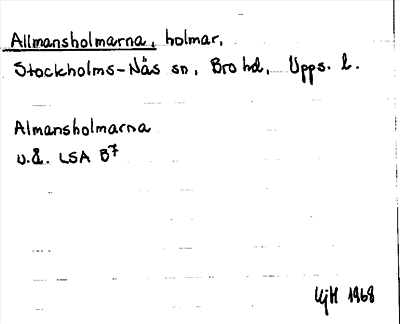 Allmansholmarna, holmar,
Stockholms-Näs sn, Bro hd, Upps. l.
Almansholmarna
u.å. LSA B7
1968